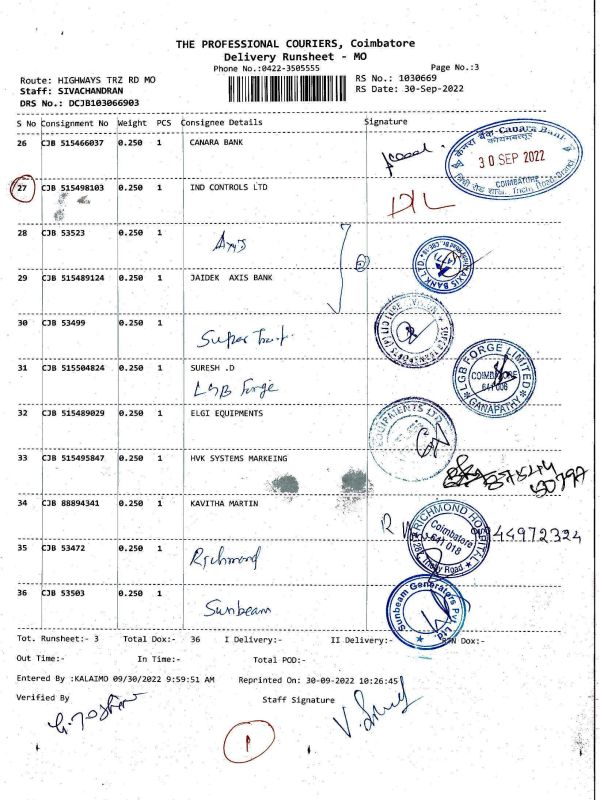 THE PROFESSIONAL COURIERS, Coimbatore
Delivery Runsheet - MO
Phone No.:0422-3505555
Page No.:3
Route: HIGHWAYS TRZ RD MO
RS No.: 1030669
Staff: SIVACHANDRAN
RS Date: 30-Sep-2022
DRS No.: DCJB103066903
S No Consignment No Weight PCS Consignee Details Signature
26 CJB 515466037 0.250 1 CANARA BANK
केनरा बैंक Canara Bank
30 SEP 2022
COIMBATORE
27 CJB 515498103 0.250 1 IND CONTROLS LTD
D/L
28 CJB 53523 0.250 1 Axis
AXIS BANK LTD
29 CJB 515489124 0.250 1 JAIDEK AXIS BANK
30 CJB 53499 0.250 1
31 CJB 515504824 0.250 1 SURESH .D
LGB Forge
LGB FORGE LIMITED
COIMBATORE
641 006
GANAPATHY
32 CJB 515489029 0.250 1 ELGI EQUIPMENTS
33 CJB 515495847 0.250 1 HVK SYSTEMS MARKEING
34 CJB 88894341 0.250 1 KAVITHA MARTIN
RICHMOND HOSPITAL
Coimbatore
641 018
9944972324
35 CJB 53472 0.250 1 Richmond
36 CJB 53503 0.250 1 Sunbeam
Sunbeam Generators Pvt. Ltd.
Tot. Runsheet:- 3 Total Dox:- 36 I Delivery:- II Delivery:- Dox:-
Out Time:- In Time:- Total POD:-
Entered By :KALAIMO 09/30/2022 9:59:51 AM Reprinted On: 30-09-2022 10:26:45
Verified By Staff Signature
1